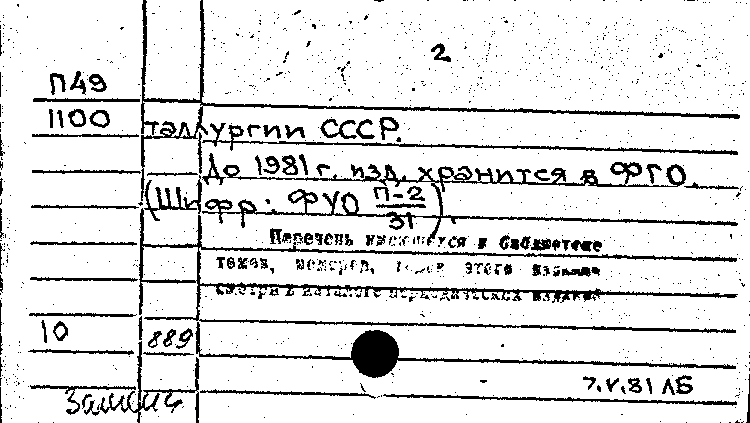 2
П49
1100
таллургии СССР.
До 1981 г. изд. хранится в ФГО.
(Шифр: ФУО П-2/31).
Перечень имеющихся в библиотеке
томов, номеров, этого издания
смотри в каталоге периодических изданий
10 889
7.V.81 ЛБ